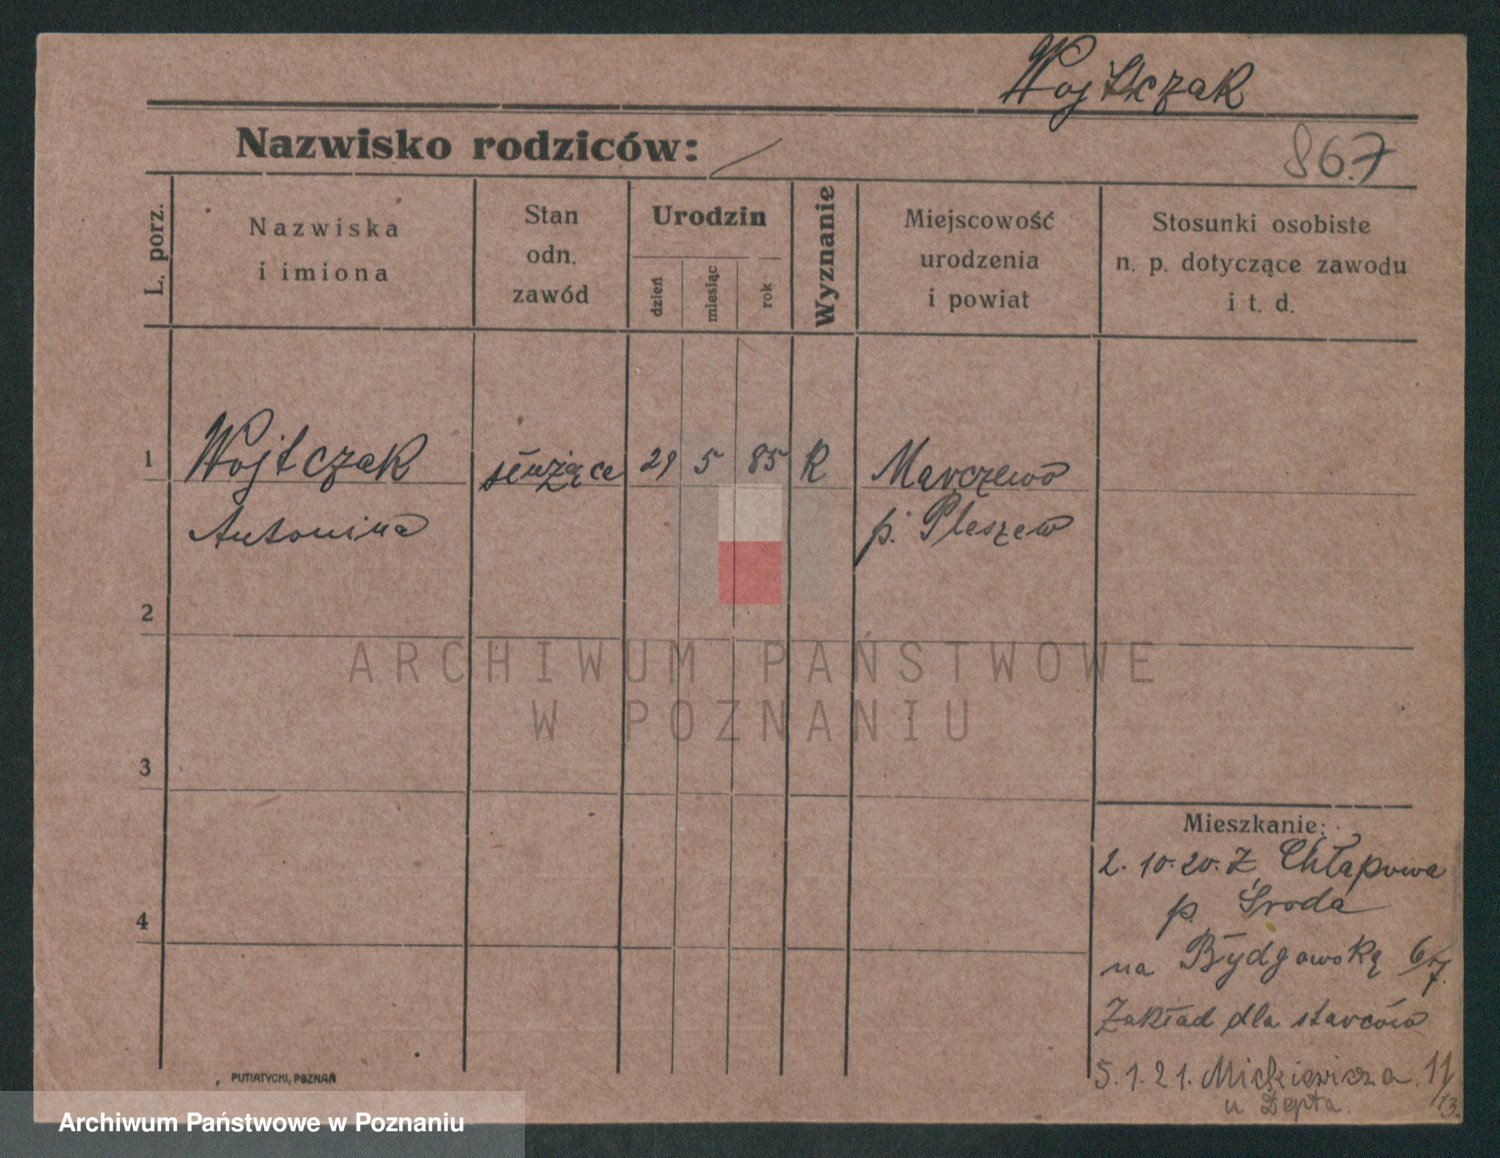 Wojtczak
Nazwisko rodziców:
867
L. porz.
Nazwiska
i imiona
Stan
odn.
zawód
Urodzin
dzień
miesiąc
rok
Wyznanie
Miejscowość
urodzenia
i powiat
Stosunki osobiste
n. p. dotyczące zawodu
i t. d.
1 Wojtczak służąca 29 5 85 R Marczewo
Antonina p. Pleszew
2
ARCHIWUM PAŃSTWOWE
W POZNANIU
3
Mieszkanie:
2. 10. 20. Z Chłapowa
p. Środa
4
na Bydgowską 6/7.
Zakład dla starców
5. 1. 21. Mickiewicza 11/13.
u Depta.
PUTIATYCKI, POZNAŃ
Archiwum Państwowe w Poznaniu